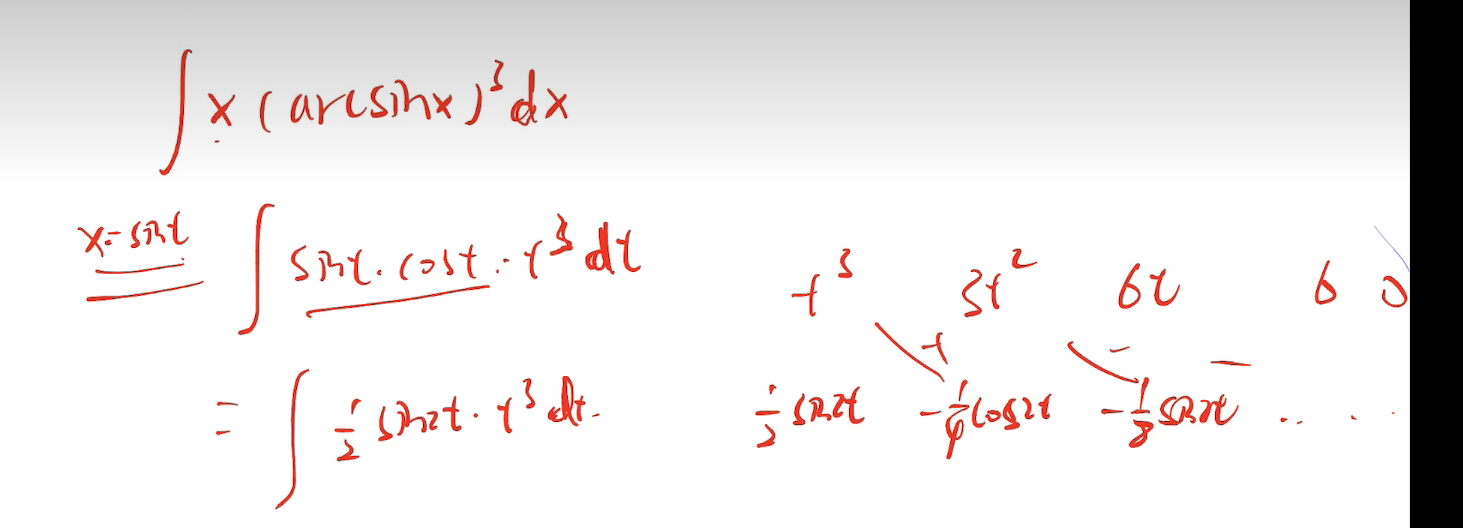 ∫ x (arcsinx)³ dx
x=sint ∫ sint·cost·t³ dt
= ∫ ½ sin2t·t³ dt.
t³ 3t² 6t 6 0
+ − −
½ sin2t −¼cos2t −⅛sin2t .. . .